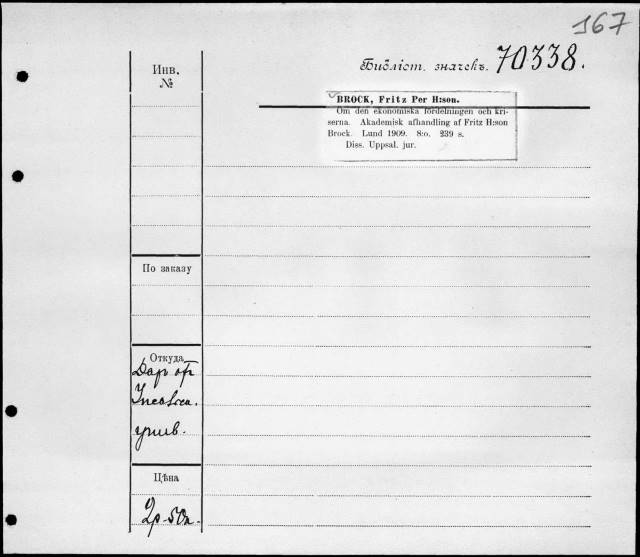 167
Библіот. значекъ. 70338.
Инв.
№
BROCK, Fritz Per H:son.
Om den ekonomiska fördelningen och kri-
serna. Akademisk afhandling af Fritz H:son
Brock. Lund 1909. 8:o. 239 s.
Diss. Uppsal. jur.
По заказу
Откуда
Даръ от
унив.
Цѣна
2р-50к.